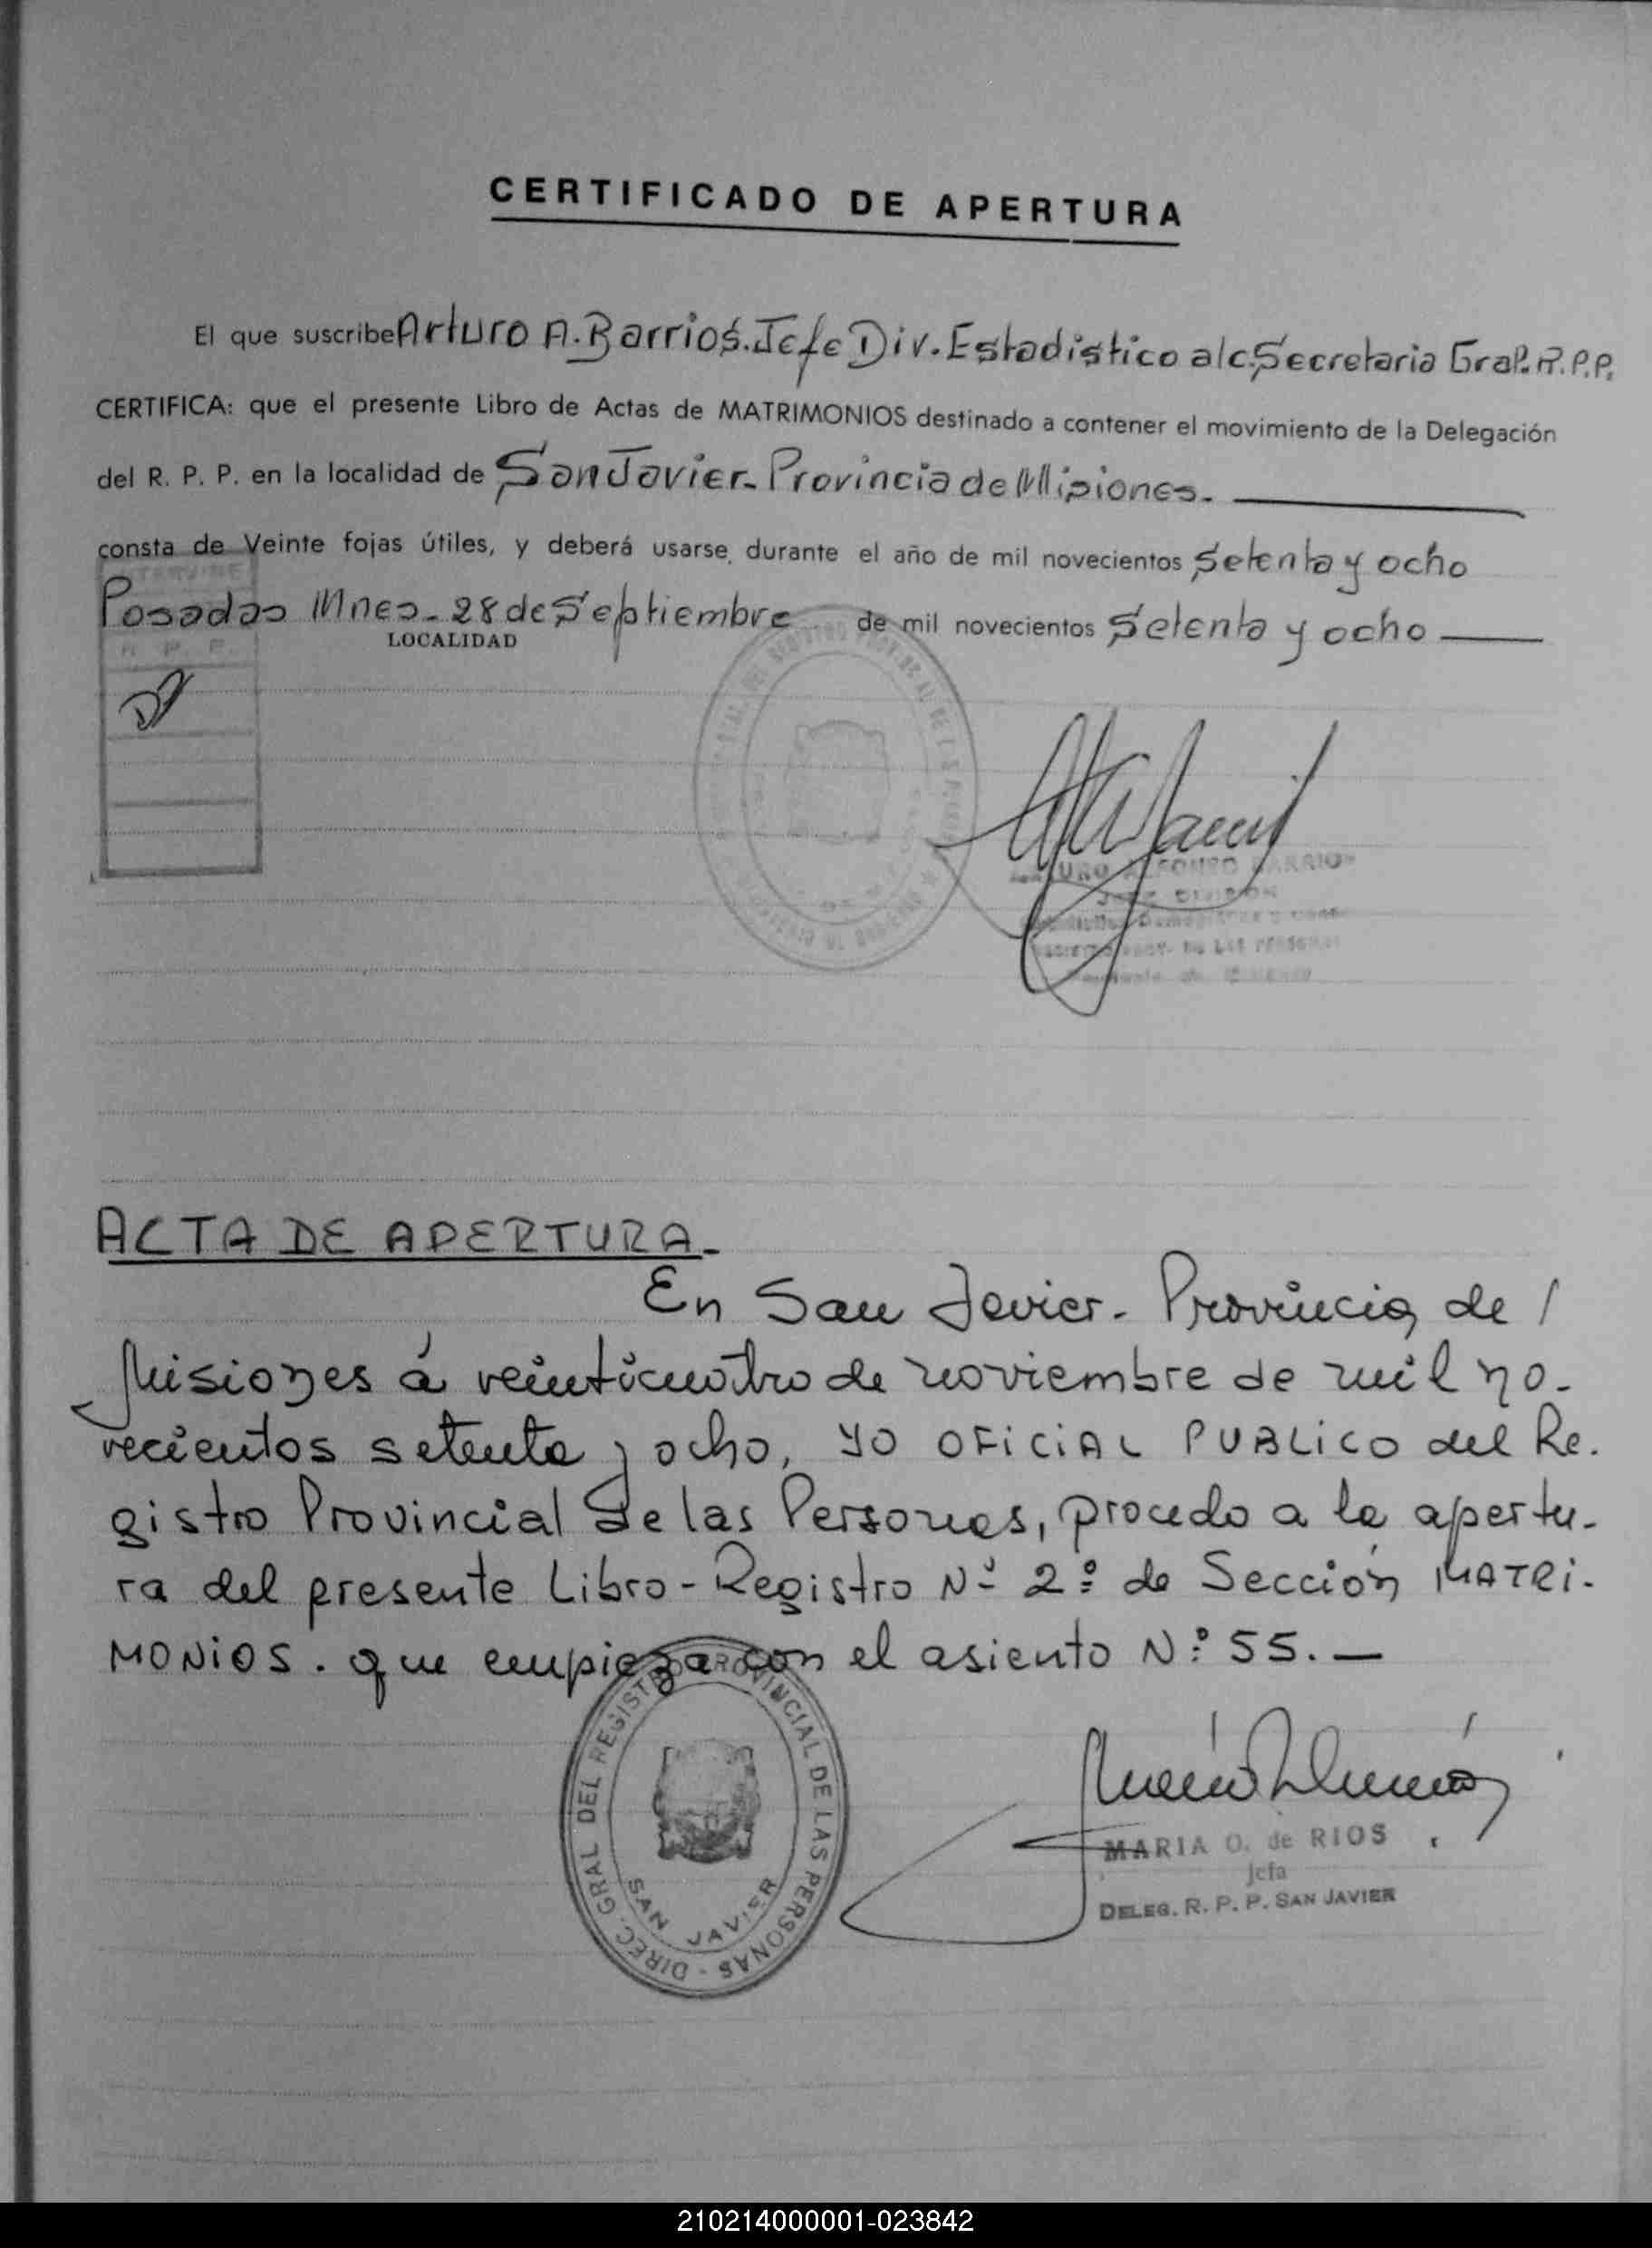 CERTIFICADO DE APERTURA
El que suscribe Arturo A. Barrios. Jefe Div. Estadistico a/c. Secretaria Gral. R.P.P.
CERTIFICA: que el presente Libro de Actas de MATRIMONIOS destinado a contener el movimiento de la Delegación
del R. P. P. en la localidad de San Javier - Provincia de Misiones.
consta de Veinte fojas útiles, y deberá usarse, durante el año de mil novecientos Setenta y ocho
Posadas Mnes - 28 de Septiembre de mil novecientos Setenta y ocho
LOCALIDAD
R. P. P.
ARTURO ALFONSO BARRIOS
JEFE DIVISION
ACTA DE APERTURA.-
En San Javier - Provincia de /
Misiones á veinticuatro de noviembre de mil no-
vecientos setenta y ocho, YO OFICIAL PUBLICO del Re-
gistro Provincial de las Personas, procedo a la apertu-
ra del presente Libro - Registro Nº 2º de Sección MATRI-
MONIOS. que empieza con el asiento Nº 55. —
DIREC. GRAL DEL REGISTRO PROVINCIAL DE LAS PERSONAS -
SAN JAVIER
MARIA O. de RIOS
Jefa
DELEG. R. P. P. SAN JAVIER
210214000001-023842